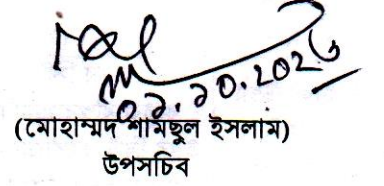 ০১.১০.২০২৬
(মোহাম্মদ শামছুল ইসলাম)
উপসচিব